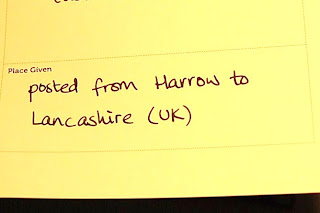 Place Given
posted from Harrow to
Lancashire (UK)